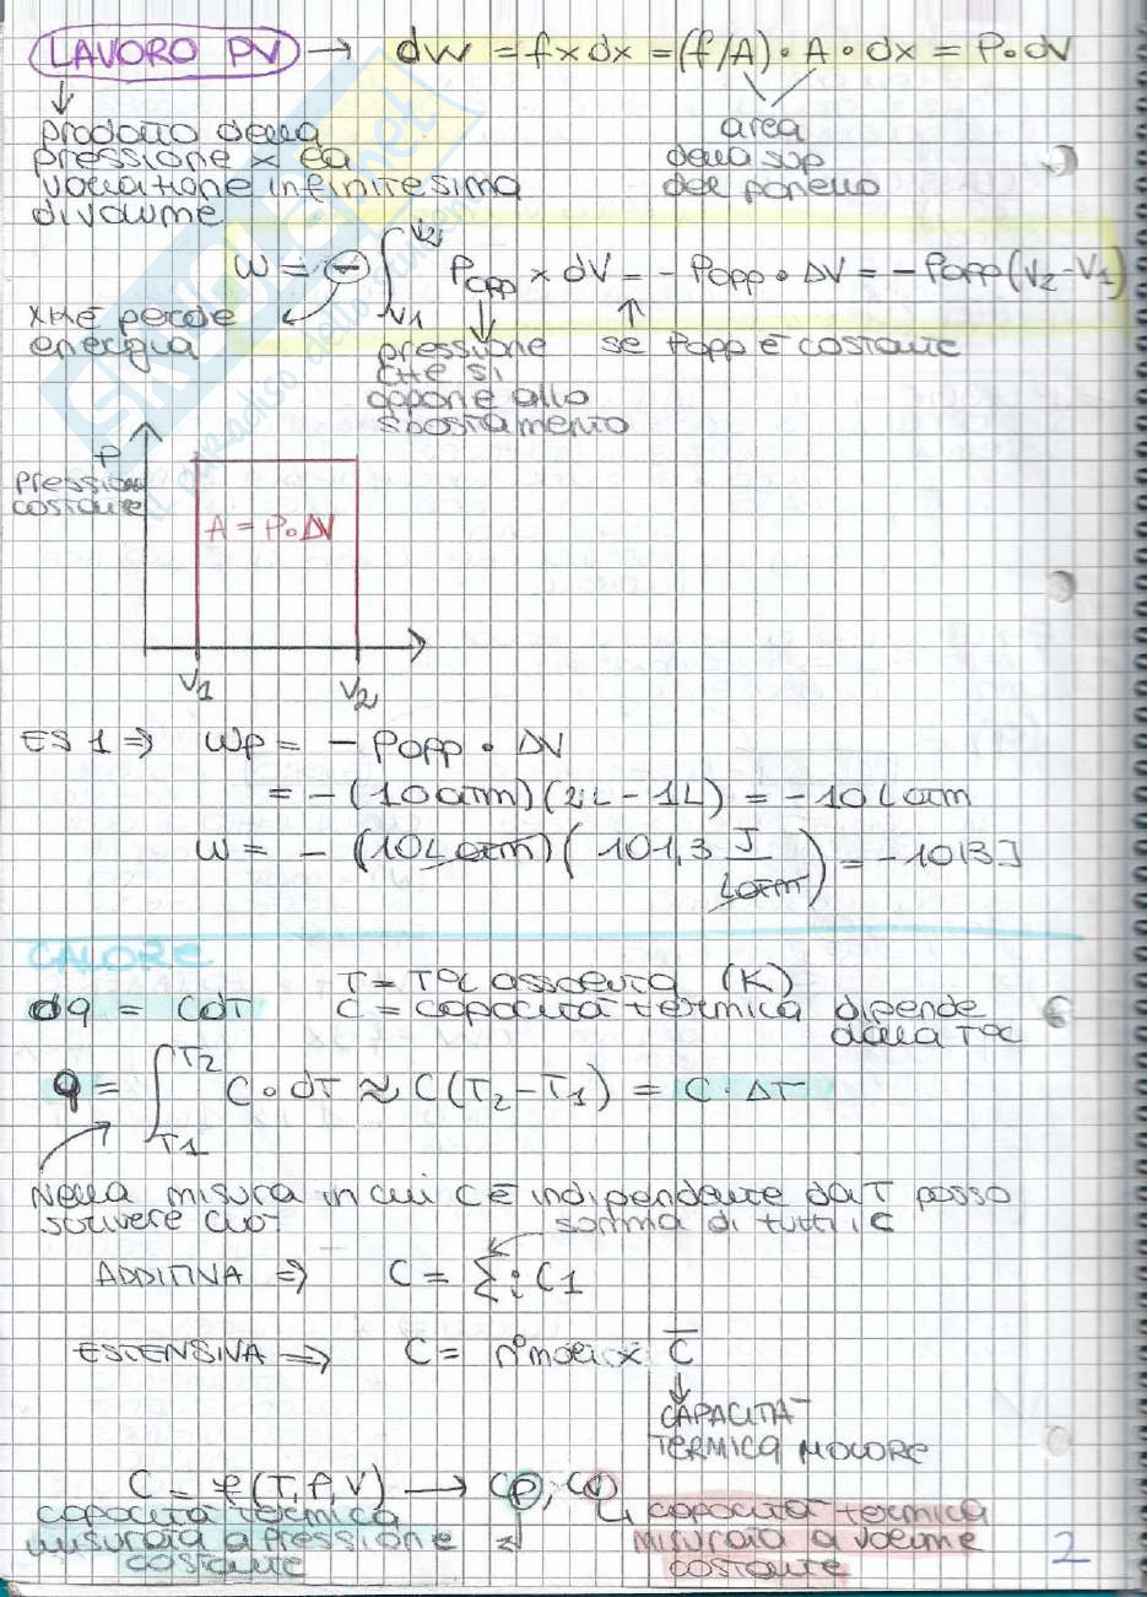 LAVORO PV → dW = f x dx = (f/A) • A • dx = P • dV
prodotto della
pressione x la
variazione infinitesima
di volume
area
della sup
del pistone
W = - ∫ V1 V2 Popp x dV = - Popp • ΔV = - Popp (V2 - V1)
xké perde
energia
pressione
che si
oppone allo
spostamento
se Popp è costante
P
pressione
costante
A = P • ΔV
V1 V2
ES 1 ⇒ Wp = - Popp • ΔV
= - (10 atm) (2L - 1L) = - 10 L atm
W = - (10 L atm) ( 101,3 J / L atm ) = - 1013 J
CALORE
T = T°C assoluta (K)
dq = CdT
C = capacità termica dipende
dalla T°C
q = ∫ T1 T2 C • dT ≈ C (T2 - T1) = C • ΔT
Nella misura in cui C è indipendente da T posso
scrivere ciò↑
somma di tutti i C
ADDITIVA ⇒ C = Σi C1
ESTENSIVA ⇒ C = n°moli x C̅
CAPACITÀ
TERMICA MOLARE
C = f (T, P, V) → Cp, Cv
capacità termica
misurata a pressione
costante
capacità termica
misurata a volume
costante
2
SKUOLA.net
il paradiso dello studente